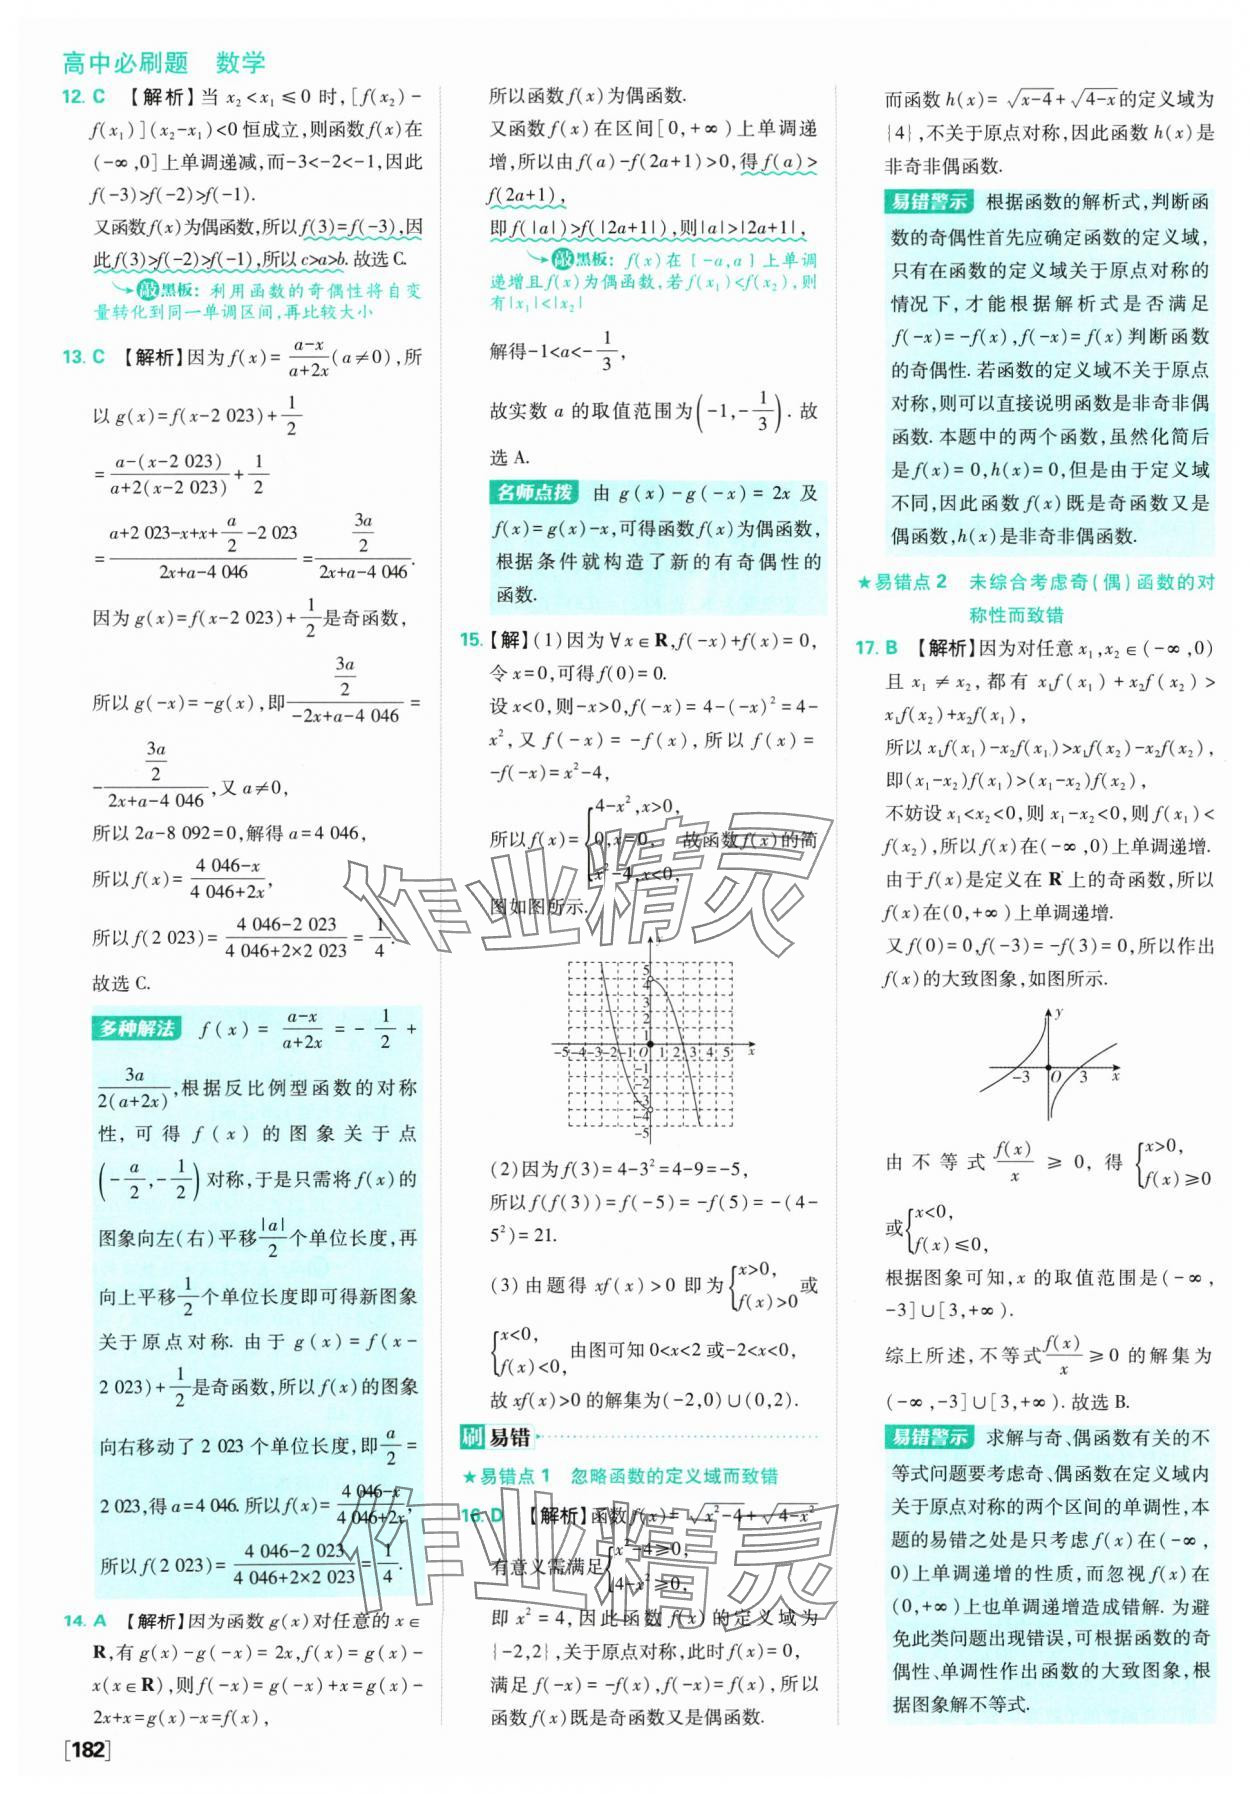 高中必刷题 数学
12. C 【解析】当 x₂<x₁≤0 时,[f(x₂)-
f(x₁)](x₂-x₁)<0 恒成立,则函数 f(x) 在
(-∞,0]上单调递减,而-3<-2<-1,因此
f(-3)>f(-2)>f(-1).
又函数 f(x) 为偶函数,所以 f(3)=f(-3),因
此 f(3)>f(-2)>f(-1),所以 c>a>b. 故选 C.
敲黑板:利用函数的奇偶性将自变
量转化到同一单调区间,再比较大小
13. C 【解析】因为 f(x)=(a-x)/(a+2x)(a≠0),所
以 g(x)=f(x-2 023)+1/2
=(a-(x-2 023))/(a+2(x-2 023))+1/2
=(a+2 023-x+x+a/2-2 023)/(2x+a-4 046)=(3a/2)/(2x+a-4 046).
因为 g(x)=f(x-2 023)+1/2是奇函数,
所以 g(-x)=-g(x),即(3a/2)/(-2x+a-4 046)=
-(3a/2)/(2x+a-4 046),又 a≠0,
所以 2a-8 092=0,解得 a=4 046,
所以 f(x)=(4 046-x)/(4 046+2x),
所以 f(2 023)=(4 046-2 023)/(4 046+2×2 023)=1/4.
故选 C.
多种解法 f(x)=(a-x)/(a+2x)=-1/2+
3a/(2(a+2x)),根据反比例型函数的对称
性,可得 f(x) 的图象关于点
(-a/2,-1/2)对称,于是只需将 f(x) 的
图象向左(右)平移|a|/2个单位长度,再
向上平移1/2个单位长度即可得新图象
关于原点对称. 由于 g(x)=f(x-
2 023)+1/2是奇函数,所以 f(x) 的图象
向右移动了 2 023 个单位长度,即a/2=
2 023,得 a=4 046. 所以 f(x)=(4 046-x)/(4 046+2x),
所以 f(2 023)=(4 046-2 023)/(4 046+2×2 023)=1/4.
14. A 【解析】因为函数 g(x) 对任意的 x∈
R,有 g(x)-g(-x)=2x,f(x)=g(x)-
x(x∈R),则 f(-x)=g(-x)+x=g(x)-
2x+x=g(x)-x=f(x),
[182]
所以函数 f(x) 为偶函数.
又函数 f(x) 在区间[0,+∞)上单调递
增,所以由 f(a)-f(2a+1)>0,得 f(a)>
f(2a+1),
即 f(|a|)>f(|2a+1|),则|a|>|2a+1|,
敲黑板:f(x) 在[-a,a]上单调
递增且 f(x) 为偶函数,若 f(x₁)<f(x₂),则
有|x₁|<|x₂|
解得-1<a<-1/3,
故实数 a 的取值范围为(-1,-1/3). 故
选 A.
名师点拨 由 g(x)-g(-x)=2x 及
f(x)=g(x)-x,可得函数 f(x) 为偶函数,
根据条件就构造了新的有奇偶性的
函数.
15.【解】(1)因为∀x∈R,f(-x)+f(x)=0,
令 x=0,可得 f(0)=0.
设 x<0,则-x>0,f(-x)=4-(-x)²=4-
x²,又 f(-x)=-f(x),所以 f(x)=
-f(-x)=x²-4,
所以 f(x)={4-x²,x>0, 0,x=0, x²-4,x<0, 故函数 f(x) 的简
图如图所示.
y
5
4
3
2
1
-5-4-3-2-1 O 1 2 3 4 5 x
-1
-2
-3
-4
-5
(2)因为 f(3)=4-3²=4-9=-5,
所以 f(f(3))=f(-5)=-f(5)=-(4-
5²)=21.
(3)由题得 xf(x)>0 即为{x>0, f(x)>0 或
{x<0, f(x)<0, 由图可知 0<x<2 或-2<x<0,
故 xf(x)>0 的解集为(-2,0)∪(0,2).
刷易错
★易错点 1 忽略函数的定义域而致错
16. D 【解析】函数 f(x)=√(x²-4)+√(4-x²)
有意义需满足{x²-4≥0, 4-x²≥0,
即 x²=4,因此函数 f(x) 的定义域为
{-2,2},关于原点对称,此时 f(x)=0,
满足 f(-x)=-f(x),f(-x)=f(x),所以
函数 f(x) 既是奇函数又是偶函数.
而函数 h(x)=√(x-4)+√(4-x)的定义域为
{4},不关于原点对称,因此函数 h(x) 是
非奇非偶函数.
易错警示 根据函数的解析式,判断函
数的奇偶性首先应确定函数的定义域,
只有在函数的定义域关于原点对称的
情况下,才能根据解析式是否满足
f(-x)=-f(x),f(-x)=f(x) 判断函数
的奇偶性. 若函数的定义域不关于原点
对称,则可以直接说明函数是非奇非偶
函数. 本题中的两个函数,虽然化简后
是 f(x)=0,h(x)=0,但是由于定义域
不同,因此函数 f(x) 既是奇函数又是
偶函数,h(x) 是非奇非偶函数.
★易错点 2 未综合考虑奇(偶)函数的对
称性而致错
17. B 【解析】因为对任意 x₁,x₂∈(-∞,0)
且 x₁≠x₂,都有 x₁f(x₁)+x₂f(x₂)>
x₁f(x₂)+x₂f(x₁),
所以 x₁f(x₁)-x₂f(x₁)>x₁f(x₂)-x₂f(x₂),
即(x₁-x₂)f(x₁)>(x₁-x₂)f(x₂),
不妨设 x₁<x₂<0,则 x₁-x₂<0,则 f(x₁)<
f(x₂),所以 f(x) 在(-∞,0)上单调递增.
由于 f(x) 是定义在 R 上的奇函数,所以
f(x) 在(0,+∞)上单调递增.
又 f(0)=0,f(-3)=-f(3)=0,所以作出
f(x) 的大致图象,如图所示.
y
-3 O 3 x
由不等式f(x)/x≥0,得{x>0, f(x)≥0
或{x<0, f(x)≤0,
根据图象可知,x 的取值范围是(-∞,
-3]∪[3,+∞).
综上所述,不等式f(x)/x≥0 的解集为
(-∞,-3]∪[3,+∞). 故选 B.
易错警示 求解与奇、偶函数有关的不
等式问题要考虑奇、偶函数在定义域内
关于原点对称的两个区间的单调性,本
题的易错之处是只考虑 f(x) 在(-∞,
0)上单调递增的性质,而忽视 f(x) 在
(0,+∞)上也单调递增造成错解. 为避
免此类问题出现错误,可根据函数的奇
偶性、单调性作出函数的大致图象,根
据图象解不等式.
作业精灵
作业精灵